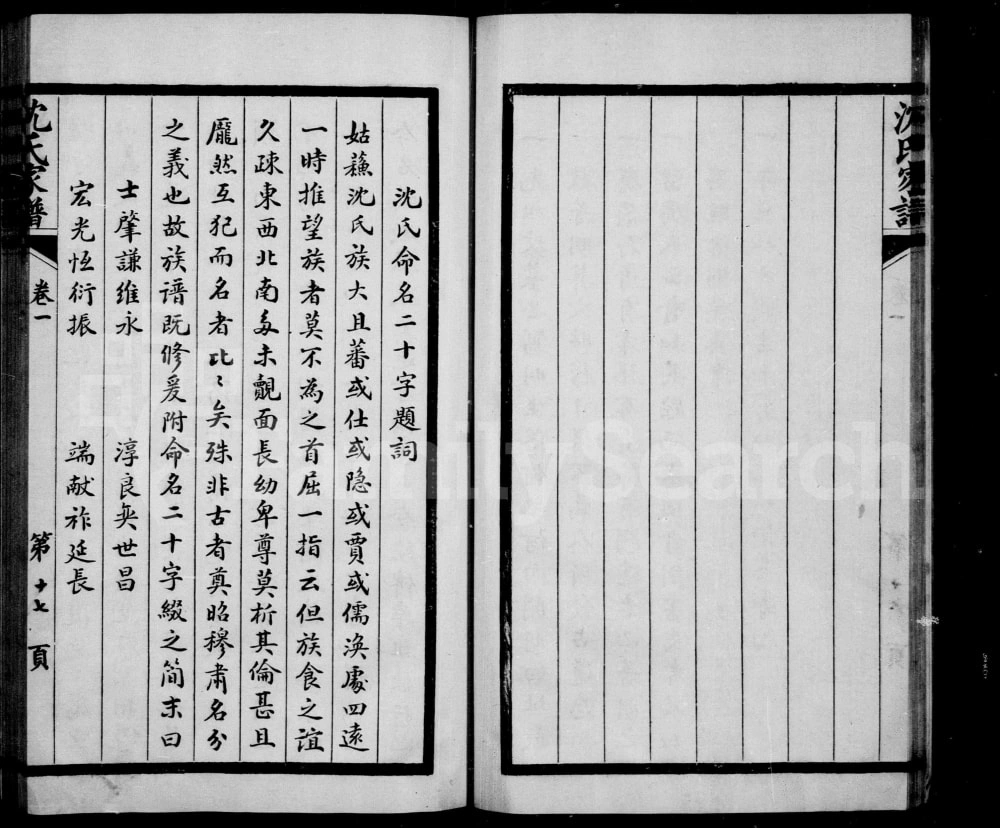 沈氏家譜
沈氏命名二十字題詞
姑蘓沈氏族大且蕃或仕或隐或賈或儒渙處四遠
一時推望族者莫不為之首屈一指云但族食之誼
久疎東西北南多未覿面長幼卑尊莫析其倫甚且
厖然互犯而名者比〻矣殊非古者奠昭穆肅名分
之義也故族谱既修爰附命名二十字綴之简末曰
士肇謙維永 淳良奕世昌
宏光恆衍振 端献祚延長
沈氏家譜 卷一 第十七頁
FamilySearch